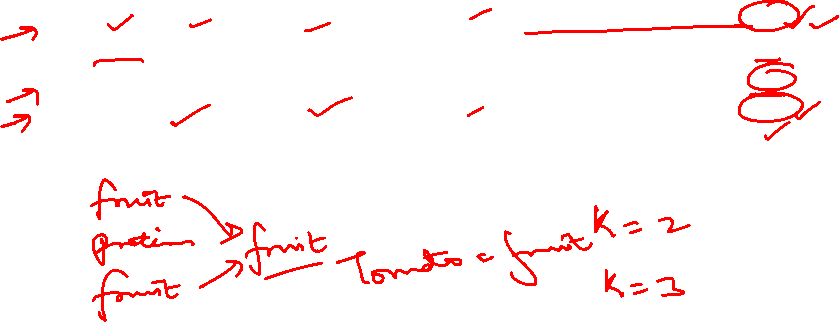 fruit
protien
fruit
fruit
Tomato = fruit
K = 2
K = 3